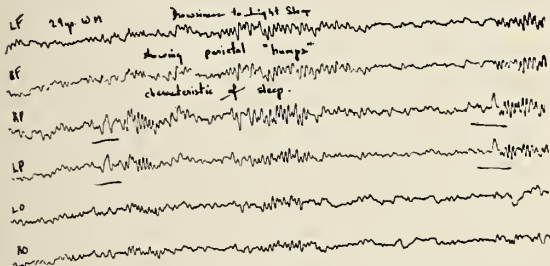 LF 29 yr. WM Drowsiness to Light Sleep
RF showing parietal "humps"
characteristic of sleep.
RP
LP
LO
RO